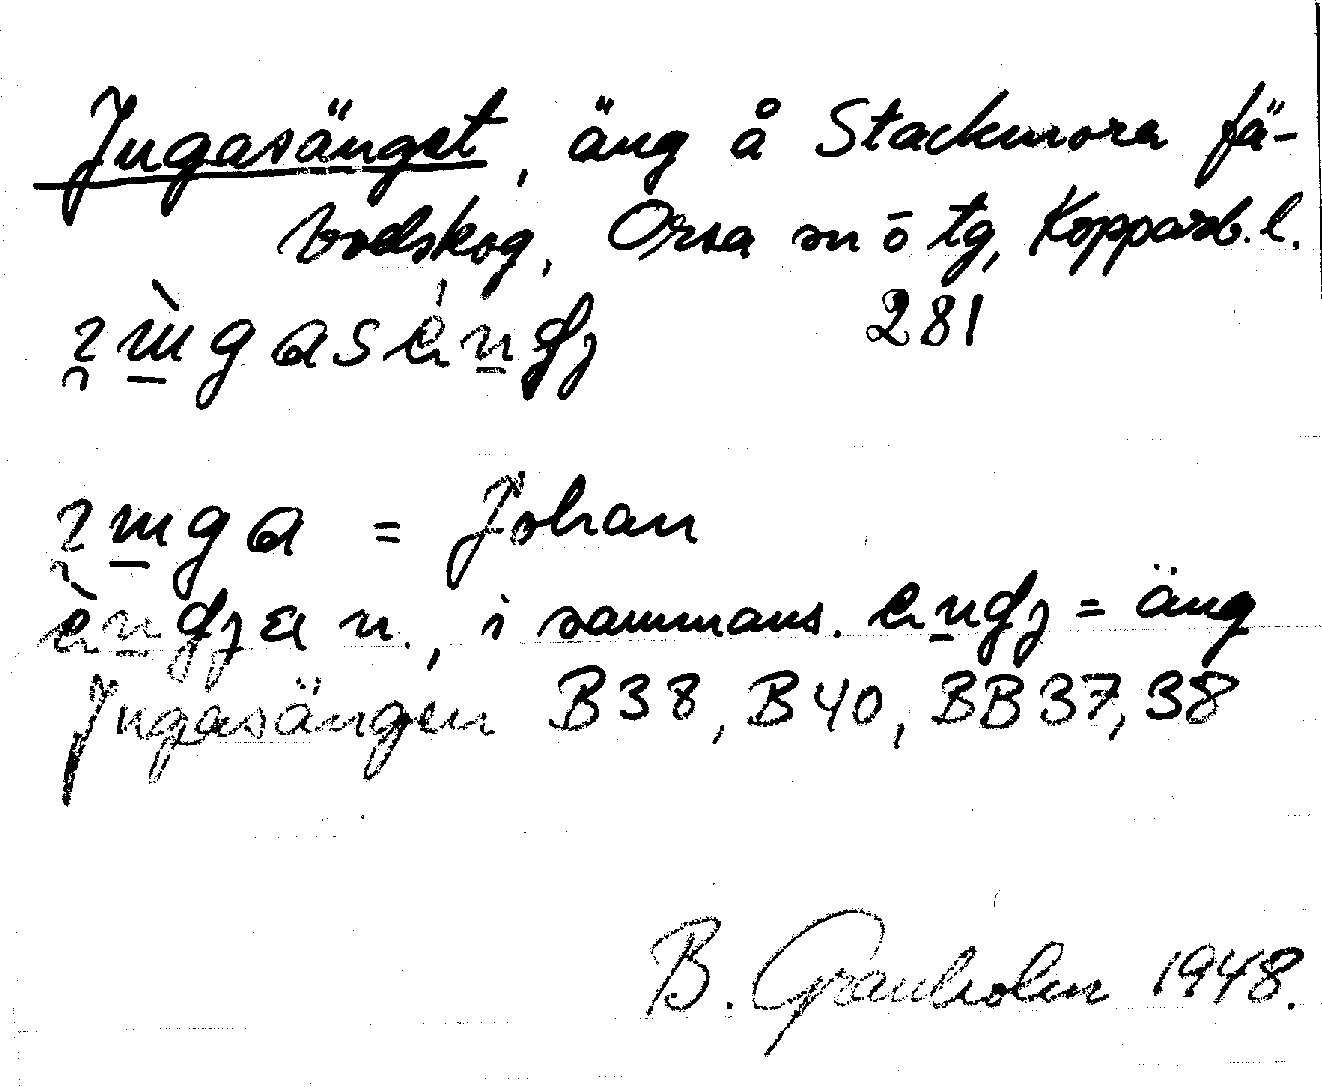 Jugasänget, äng å Stackmora fä-
bodskog, Orsa sn ö tg, Kopparb. l.
281
= Johan
i sammans. = äng
Jugasängen B38, B40, BB37, 38
B. Granholm 1948.